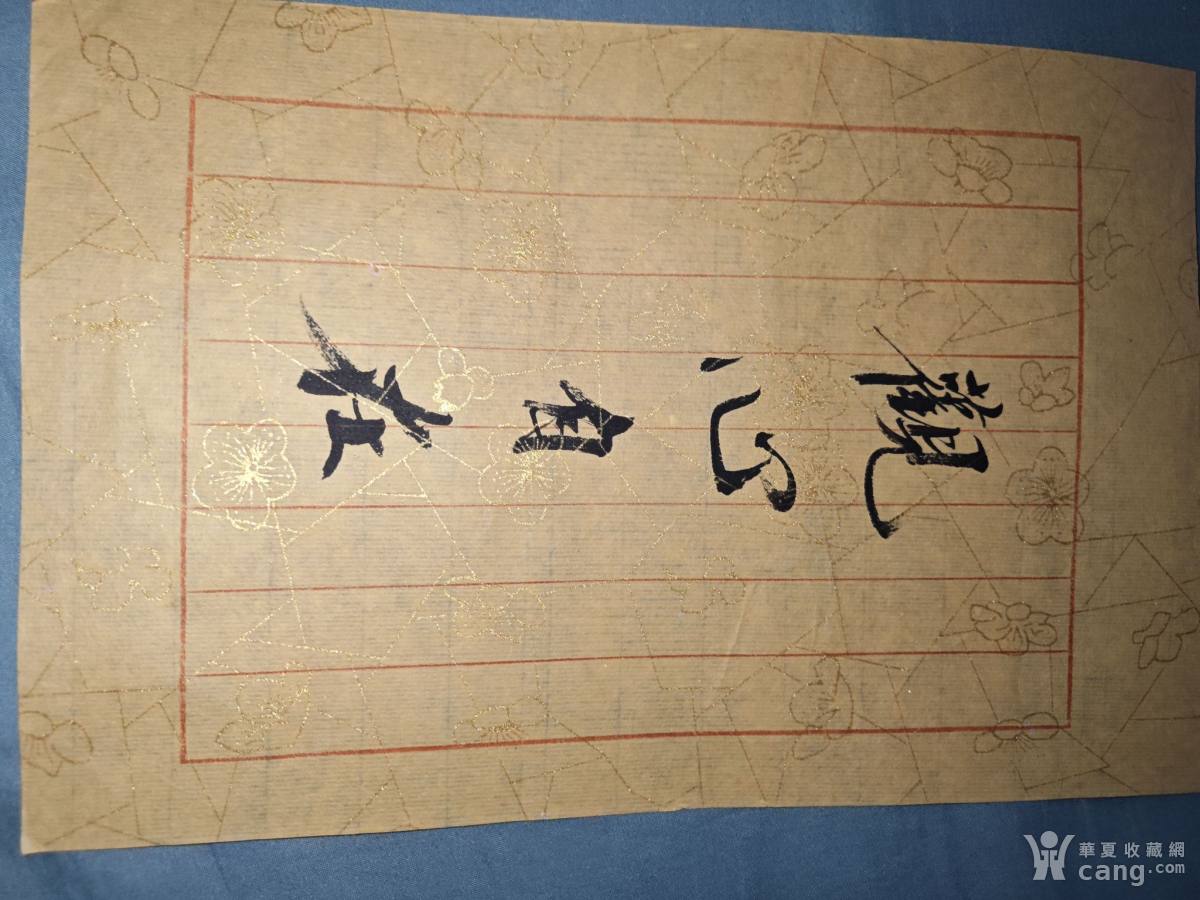 觀心自在
華夏收藏網
cang.com